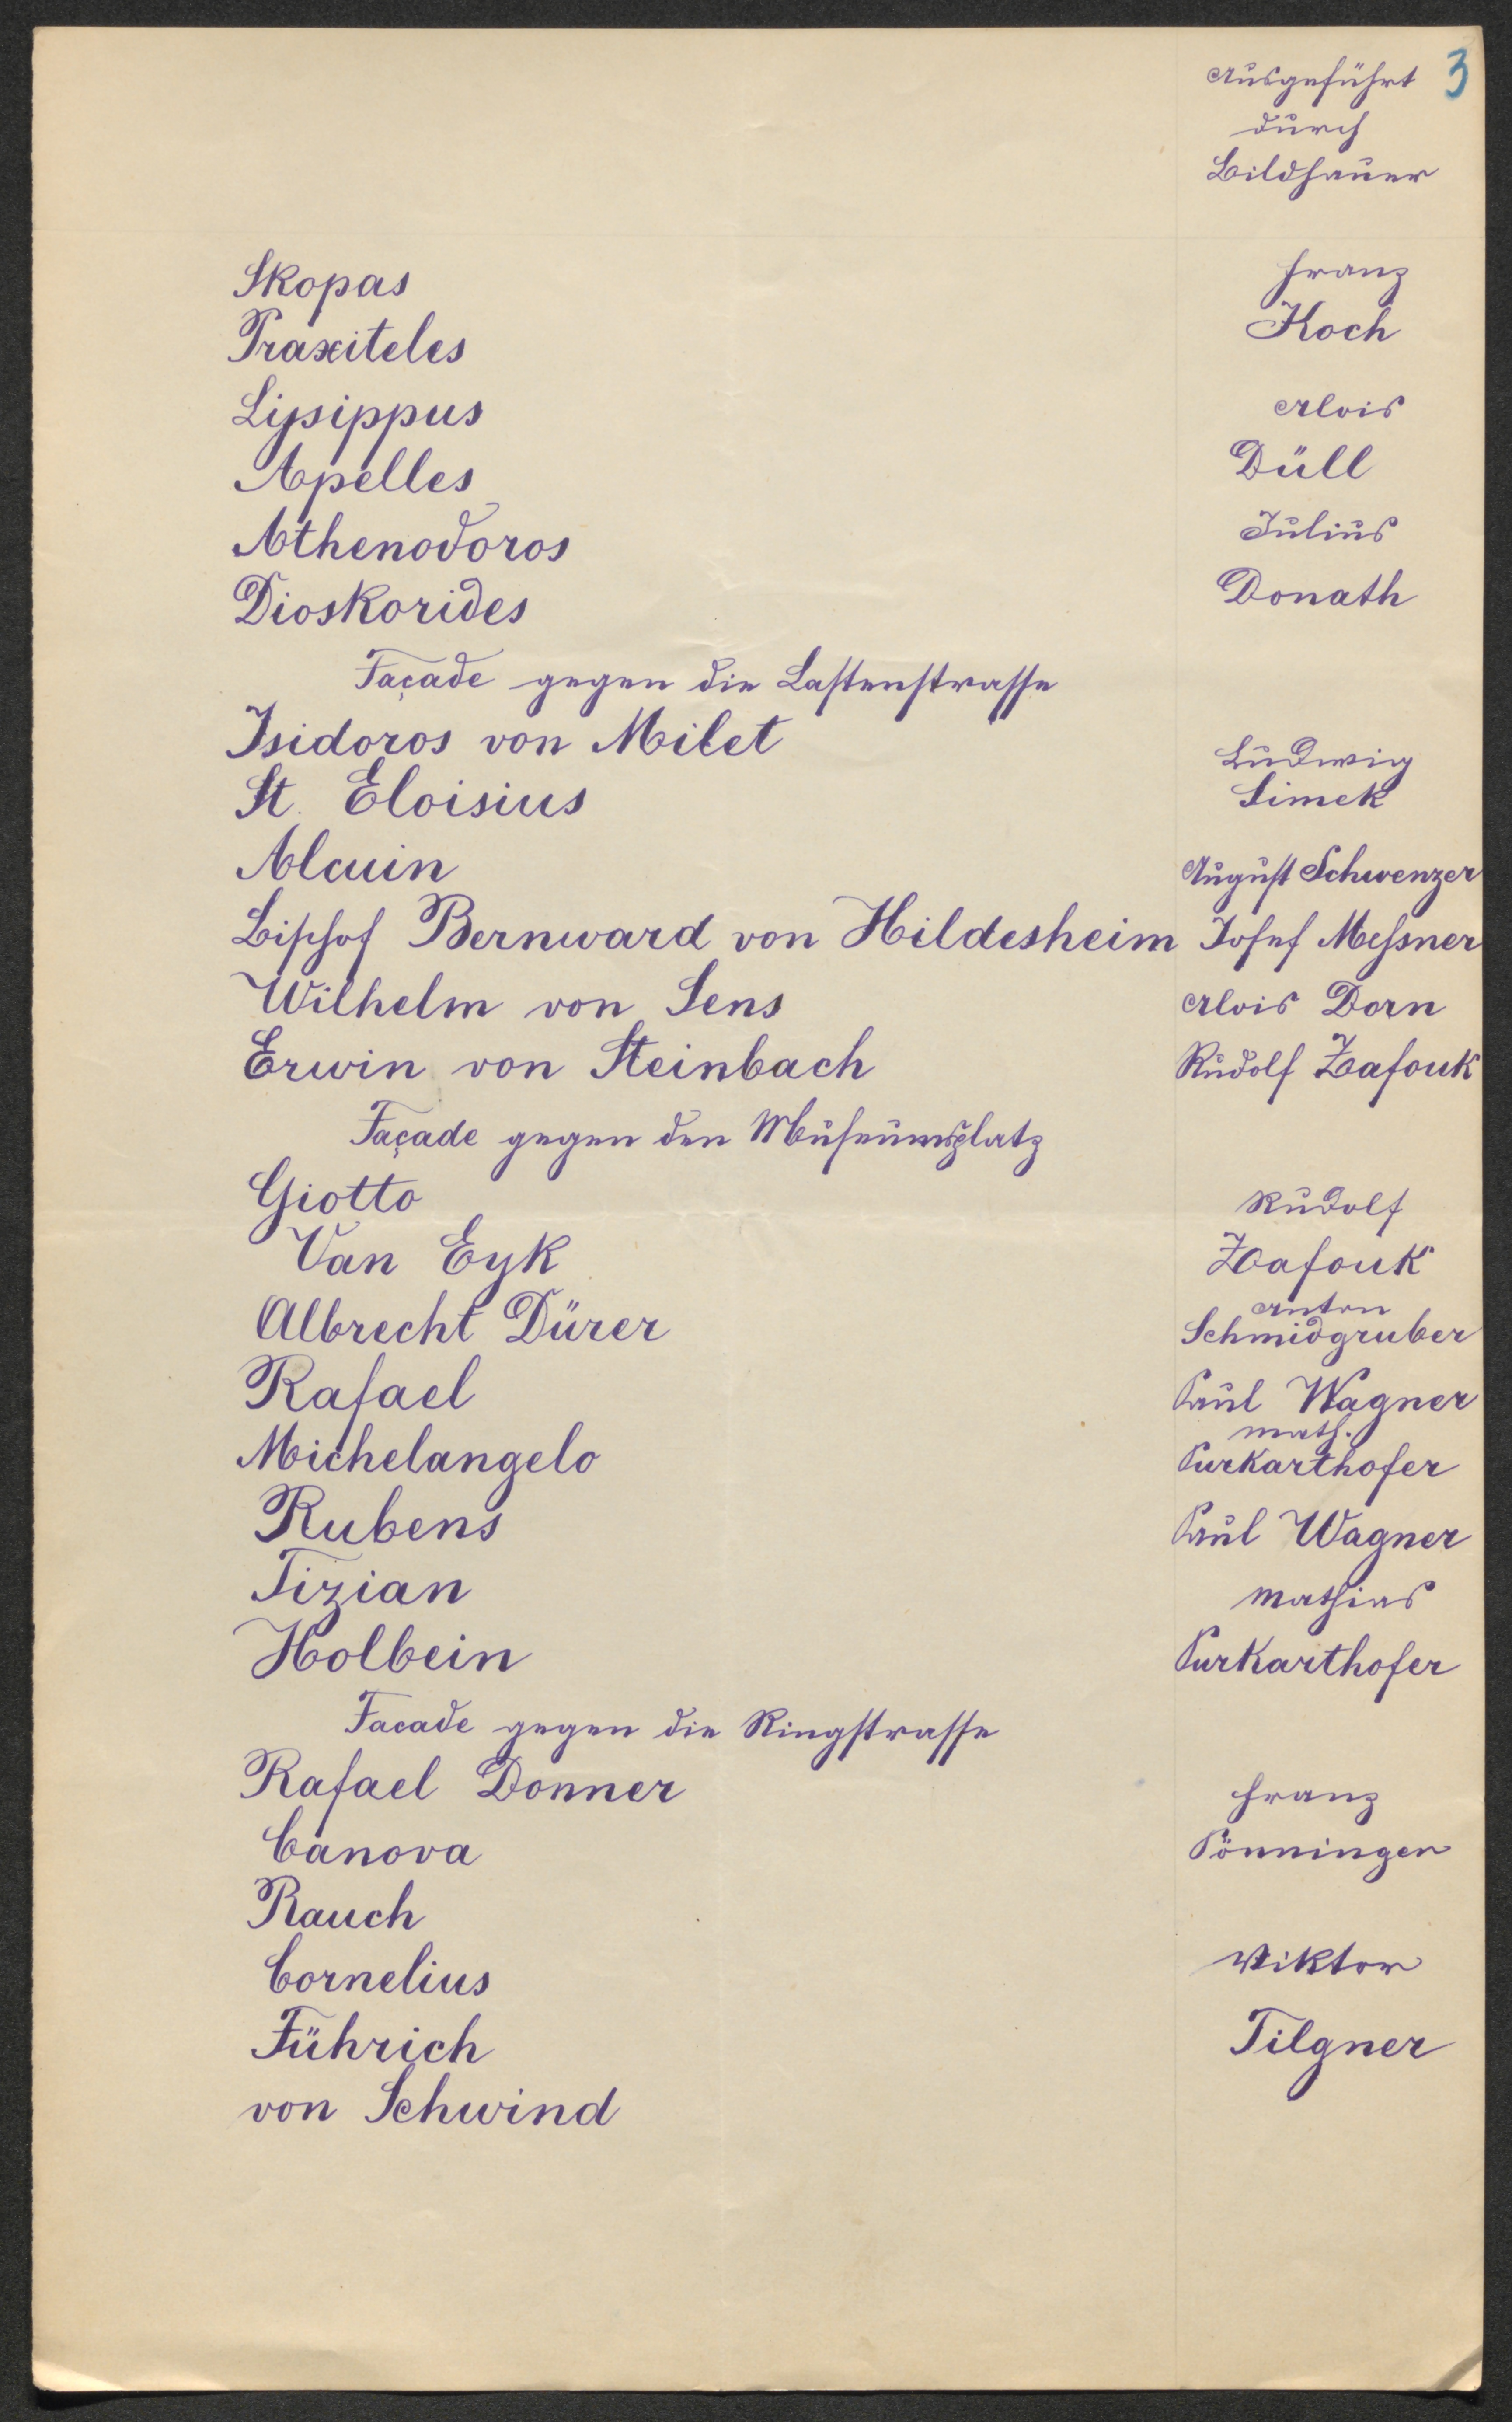 3
Ausgeführt
durch
Bildhauer
Skopas
Franz
Praxiteles
Koch
Lysippus
Alois
Apelles
Düll
Athenodoros
Julius
Dioskorides
Donath
Façade gegen die Lastenstrasse
Isidoros von Milet
Ludwig
St. Eloisius
Simek
Alcuin
August Schwenzer
Bischof Bernward von Hildesheim
Josef Messner
Wilhelm von Sens
Alois Dorn
Erwin von Steinbach
Rudolf Zafouk
Façade gegen den Museumsplatz
Giotto
Rudolf
Van Eyk
Zafouk
Anton
Albrecht Dürer
Schmidgruber
Rafael
Paul Wagner
Math.
Michelangelo
Purkarthofer
Rubens
Paul Wagner
Tizian
Mathias
Holbein
Purkarthofer
Facade gegen die Ringstrasse
Rafael Donner
Franz
Canova
Pönninger
Rauch
Cornelius
Viktor
Führich
Tilgner
von Schwind